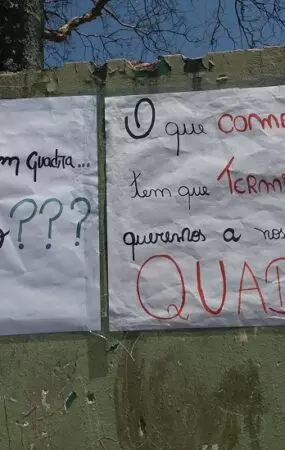 m Quadra...
???
O que come
tem que Termi
queremos a nos
QUAD